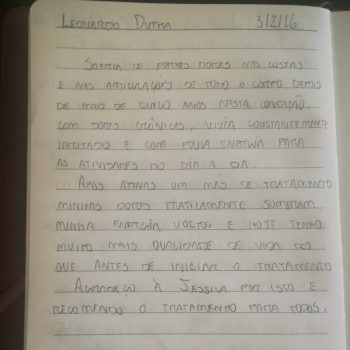 LEONARDO DUTRA 3/2/16
SOFRIA DE FORTES DORES NAS COSTAS
E NAS ARTICULAÇÕES DE TODO O CORPO, DEPOIS
DE MAIS DE CINCO ANOS NESTA CONDIÇÃO,
COM DORES CRÔNICAS, VIVIA CONSTANTEMENTE
IRRITADO E COM POUCA ENERGIA PARA
AS ATIVIDADES DO DIA A DIA.
APÓS APENAS UM MÊS DE TRATAMENTO
MINHAS DORES PRATICAMENTE SUMIRAM
MINHA ENERGIA VOLTOU E HOJE TENHO
MUITO MAIS QUALIDADE DE VIDA DO
QUE ANTES DE INICIAR O TRATAMENTO
AGRADEÇO À JESSICA POR ISSO E
RECOMENDO O TRATAMENTO PARA TODOS.